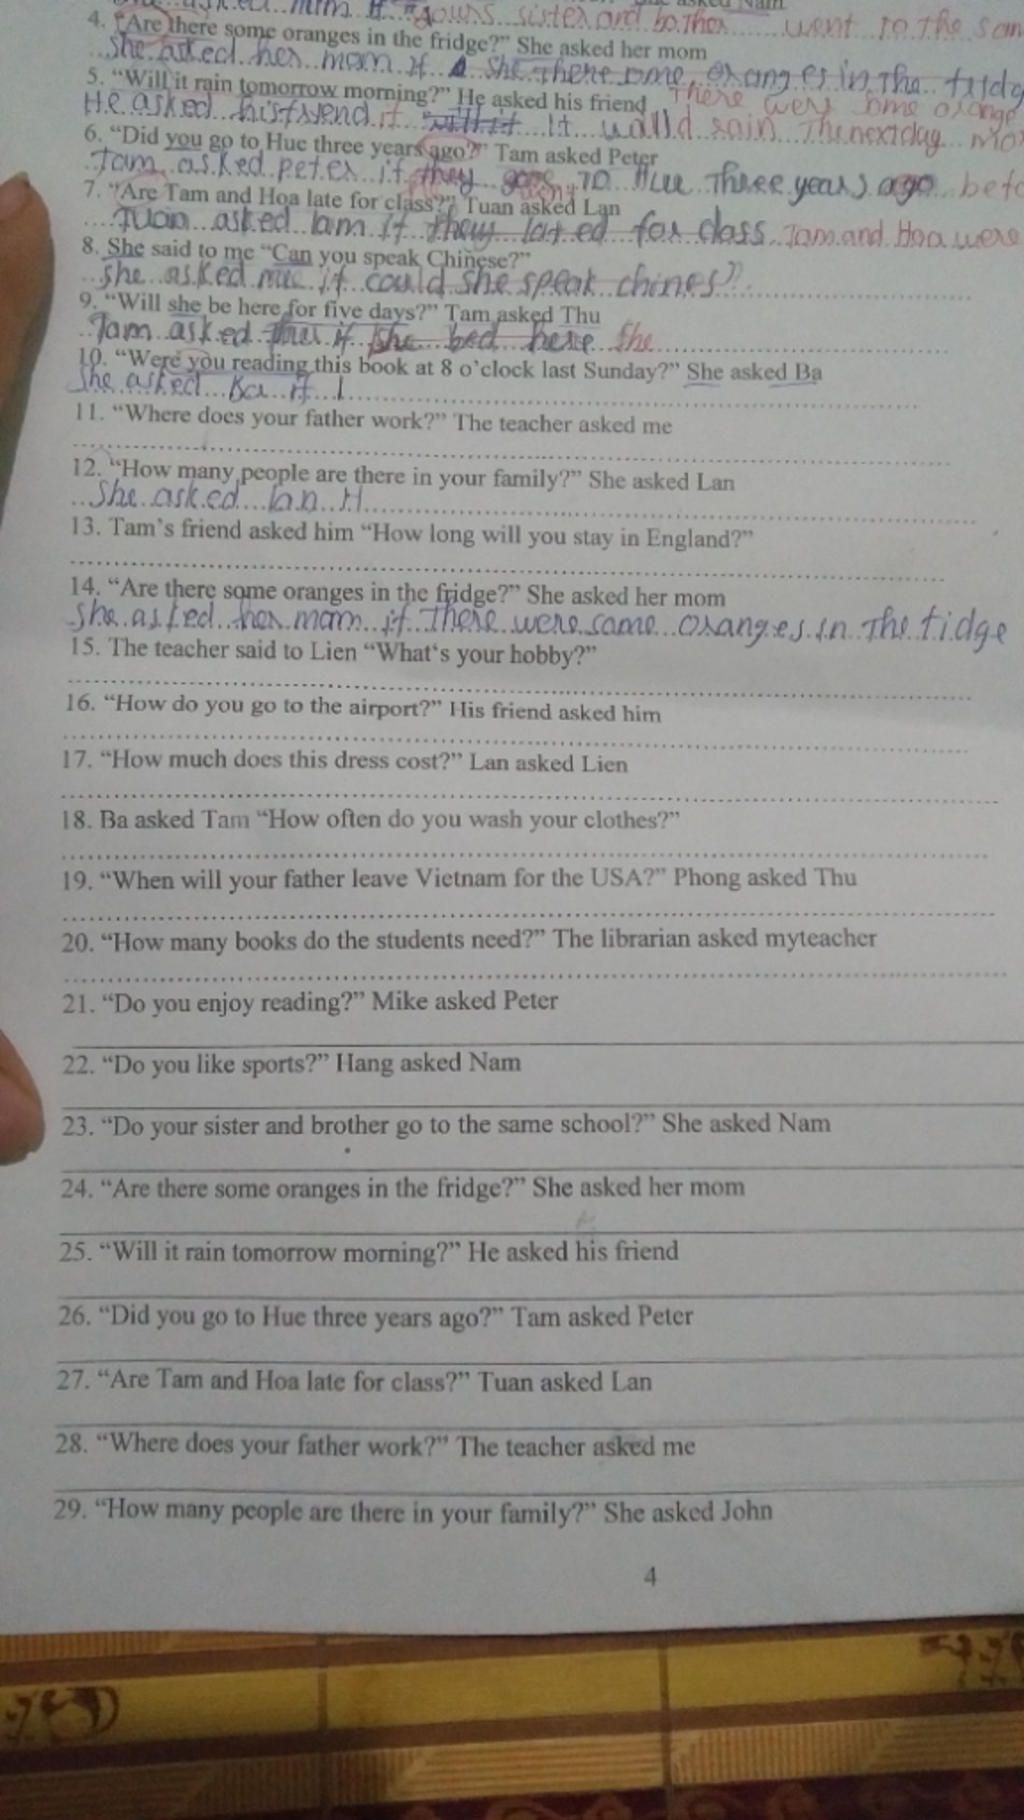 yours sister and bother went to the sam
4. "Are there some oranges in the fridge?" She asked her mom
She asked her mom if she there ome oranges in the fridg
5. "Will it rain tomorrow morning?" He asked his friend There were some orange
He asked his friend if will it It would rain The next day mo
6. "Did you go to Hue three years ago?" Tam asked Peter
Tam asked peter if they gone to Hue Three years ago befo
7. "Are Tam and Hoa late for class?" Tuan asked Lan
Tuan asked lam if they lated for class Tam and Hoa were
8. She said to me "Can you speak Chinese?"
she asked me if could she speak chines?
9. "Will she be here for five days?" Tam asked Thu
Tam asked thu if she bed here she
10. "Were you reading this book at 8 o'clock last Sunday?" She asked Ba
She asked Ba if I
11. "Where does your father work?" The teacher asked me
12. "How many people are there in your family?" She asked Lan
She asked lan
13. Tam's friend asked him "How long will you stay in England?"
14. "Are there some oranges in the fridge?" She asked her mom
She asked her mom if There were some oranges in The fidge
15. The teacher said to Lien "What's your hobby?"
16. "How do you go to the airport?" His friend asked him
17. "How much does this dress cost?" Lan asked Lien
18. Ba asked Tam "How often do you wash your clothes?"
19. "When will your father leave Vietnam for the USA?" Phong asked Thu
20. "How many books do the students need?" The librarian asked myteacher
21. "Do you enjoy reading?" Mike asked Peter
22. "Do you like sports?" Hang asked Nam
23. "Do your sister and brother go to the same school?" She asked Nam
24. "Are there some oranges in the fridge?" She asked her mom
25. "Will it rain tomorrow morning?" He asked his friend
26. "Did you go to Hue three years ago?" Tam asked Peter
27. "Are Tam and Hoa late for class?" Tuan asked Lan
28. "Where does your father work?" The teacher asked me
29. "How many people are there in your family?" She asked John
4